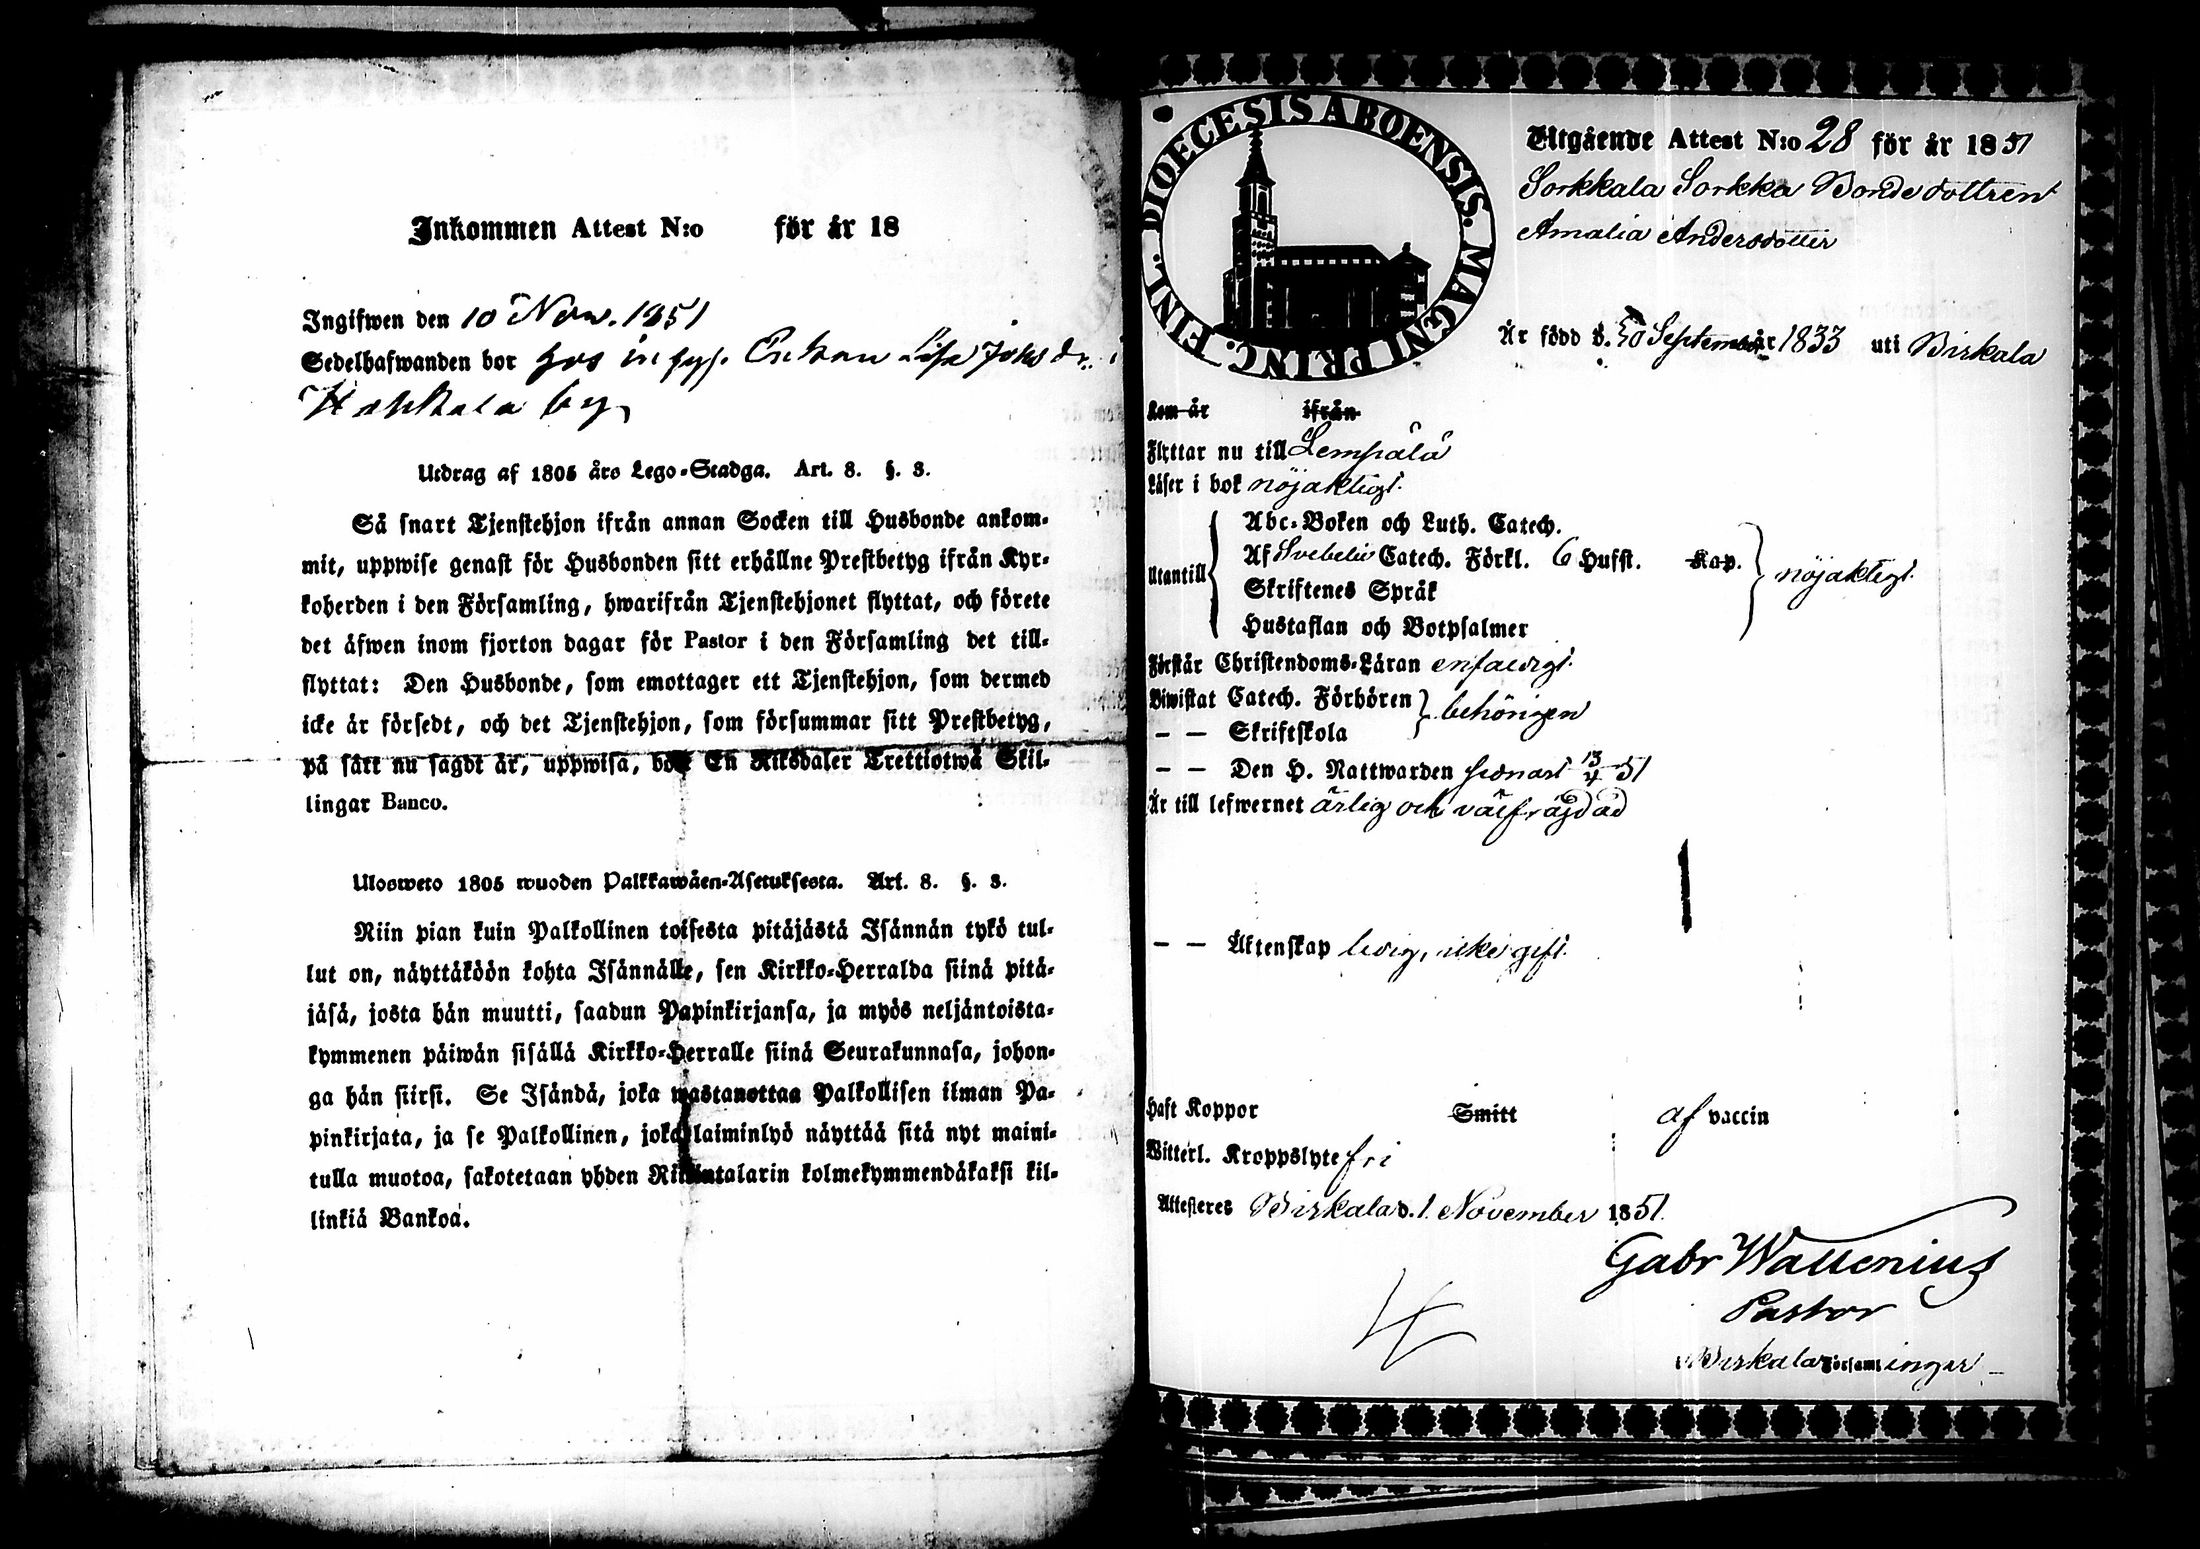 Inkommen Attest N:o för år 18
Ingifwen den 10 Nov. 1851
Sedelhafwanden bor hos inhys. Enkan Lisa Johs dr. i
Hakkala by
Utdrag af 1805 års Lego-Stadga. Art. 8. §. 3.
Så snart Tjenstehjon ifrån annan Socken till Husbonde ankom-
mit, uppwise genast för Husbonden sitt erhållne Prestbetyg ifrån Kyr-
koherden i den Församling, hwarifrån Tjenstehjonet flyttat, och förete
det äfwen inom fjorton dagar för Pastor i den Församling det till-
flyttat: Den Husbonde, som emottager ett Tjenstehjon, som dermed
icke är försedt, och det Tjenstehjon, som försummar sitt Prestbetyg,
på sätt nu sagdt är, uppwisa, böte En Riksdaler Trettiotwå Skil-
lingar Banco.
Ulosweto 1805 wuoden Palkkawäen-Asetuksesta. Art. 8. §. 3.
Niin pian kuin Palkollinen toisesta pitäjästä Isännän tykö tul-
lut on, näyttäköön kohta Isännälle, sen Kirkko-Herralda siinä pitä-
jäsä, josta hän muutti, saadun Papinkirjansa, ja myös neljäntoista-
kymmenen päiwän sisällä Kirkko-Herralle siinä Seurakunnasa, johon-
ga hän siirsi. Se Isändä, joka wastanottaa Palkollisen ilman Pa-
pinkirjata, ja se Palkollinen, joka laiminlyö näyttää sitä nyt maini-
tulla muotoa, sakotetaan yhden Rikintalarin kolmekymmendäkaksi kil-
linkiä Bankoa.
FINL. DIOECESIS ABOENSIS. MAGNI PRINC.
Utgående Attest N:o 28 för år 1851
Sorkkala Sorkka Bondedottren
Amalia Andersdotter
Är född d. 30 September år 1833 uti Birkala
Kom år ifrån
Flyttar nu till Lempälä
Läser i bok nöjaktigt.
Utantill
Abc-Boken och Luth. Catech.
Af Svebelii Catech. Förkl. 6 Hufst. Kap. nöjaktigt.
Skriftenes Språk
Hustaflan och Botpsalmer
Förstår Christendoms-Läran enfaldigt.
Biwistat Catech. Förhören behörigen
— — Skriftskola
— — Den H. Nattwarden senast 13/4 51
Är till lefwernet ärlig och välfrägdad
— — Äktenskap ledig, icke gift.
Haft Koppor Smitt af vaccin
Witterl. Kroppslyte fri
Attesteres Birkala d. 1. November 1851.
Gabr Wallenius
Pastor
i Birkala Församlingar